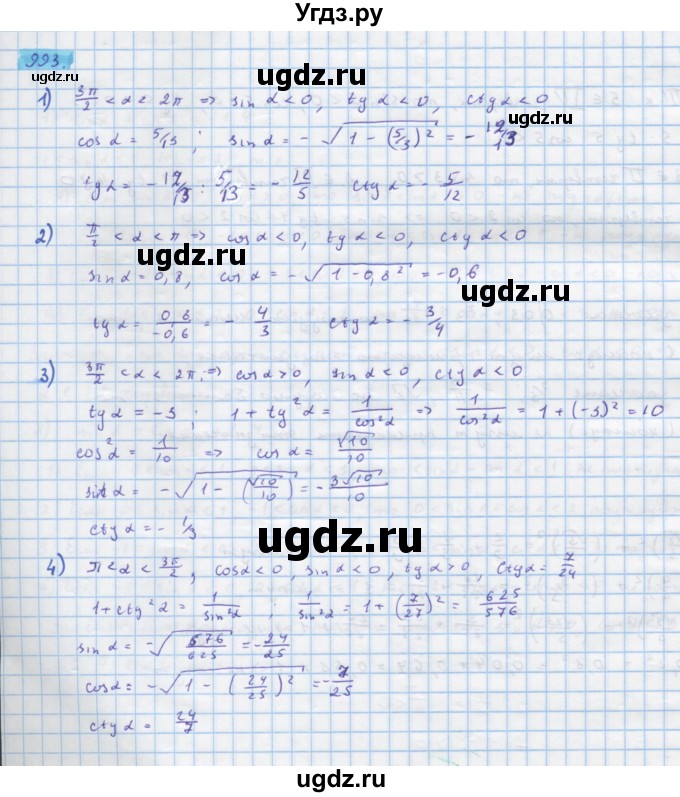 Угдз.ру
ugdz.ru
993.
1) 3π/2 < α < 2π => sin α < 0, tg α < 0, ctg α < 0
cos α = 5/13; sin α = -√(1 - (5/3)²) = -12/13
tg α = -12/13 : 5/13 = -12/5 ctg α = -5/12
2) π/2 < α < π => cos α < 0, tg α < 0, ctg α < 0
sin α = 0,8, cos α = -√(1 - 0,8²) = -0,6
tg α = 0,8/-0,6 = -4/3 ctg α = -3/4
3) 3π/2 < α < 2π. => cos α > 0, sin α < 0, ctg α < 0
tg α = -3; 1 + tg²α = 1/cos²α => 1/cos²α = 1 + (-3)² = 10
cos²α = 1/10 => cos α = √10/10
sin α = -√(1 - (√10/10)) = -3√10/10
ctg α = -1/3
4) π < α < 3π/2, cos α < 0, sin α < 0, tg α > 0, ctg α = 7/24
1 + ctg²α = 1/sin²α; 1/sin²α = 1 + (7/27)² = 625/576
sin α = -√(576/625) = -24/25
cos α = -√(1 - (24/25)²) = -7/25
ctg α = 24/7
ugdz.ru